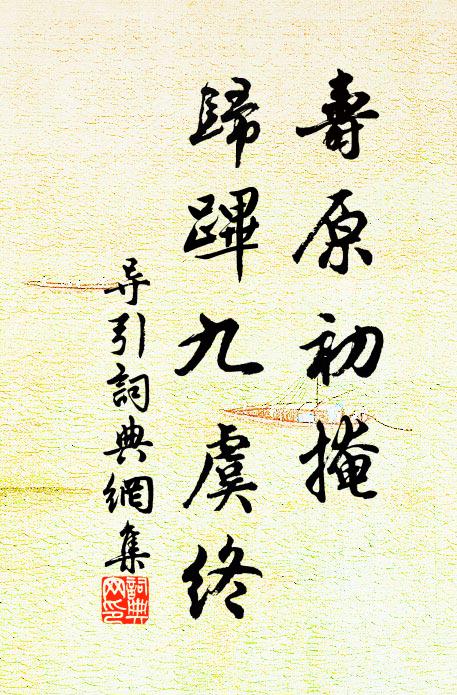 壽原初掩
歸蹕九虞終
导引詞典網集
詞典
网印